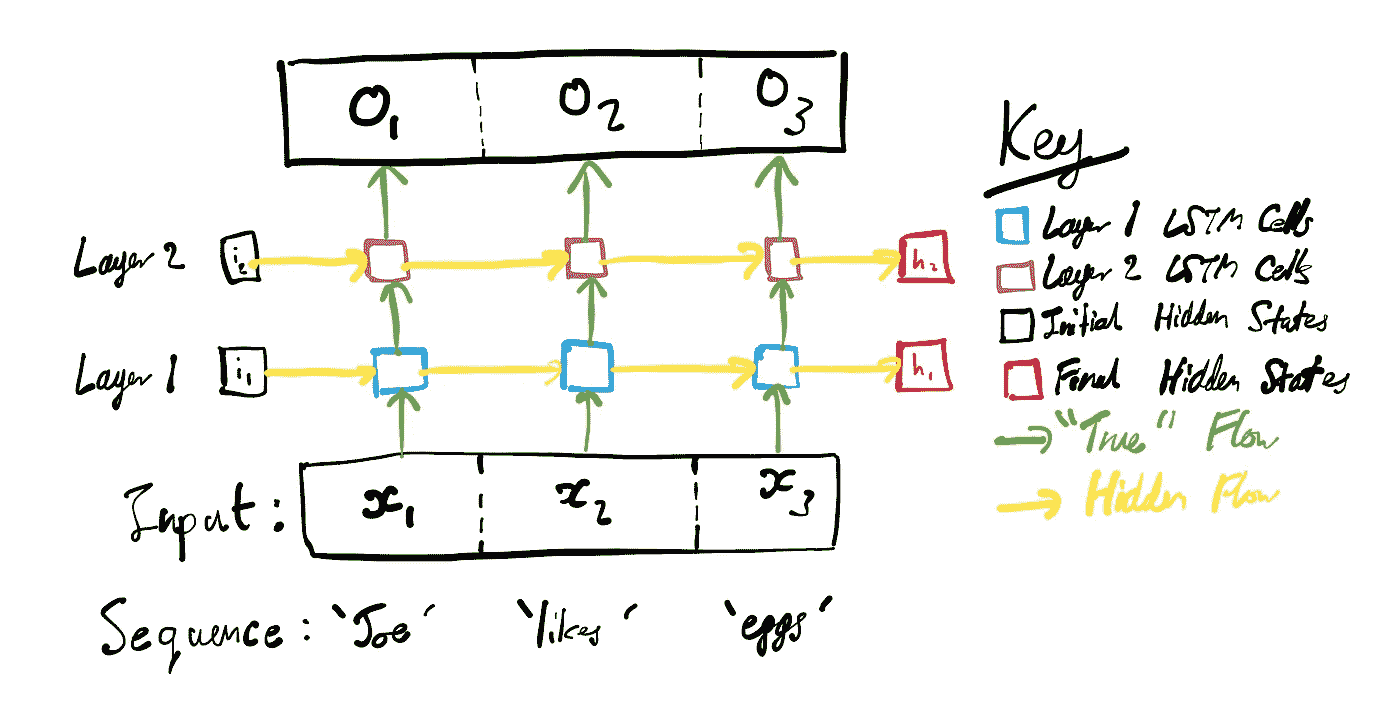 O₁ O₂ O₃
Layer 2 i₂ h₂
Layer 1 i₁ h₁
Input: x₁ x₂ x₃
Sequence: 'Joe' 'likes' 'eggs'
Key
Layer 1 LSTM Cells
Layer 2 LSTM Cells
Initial Hidden States
Final Hidden States
"True" Flow
Hidden Flow